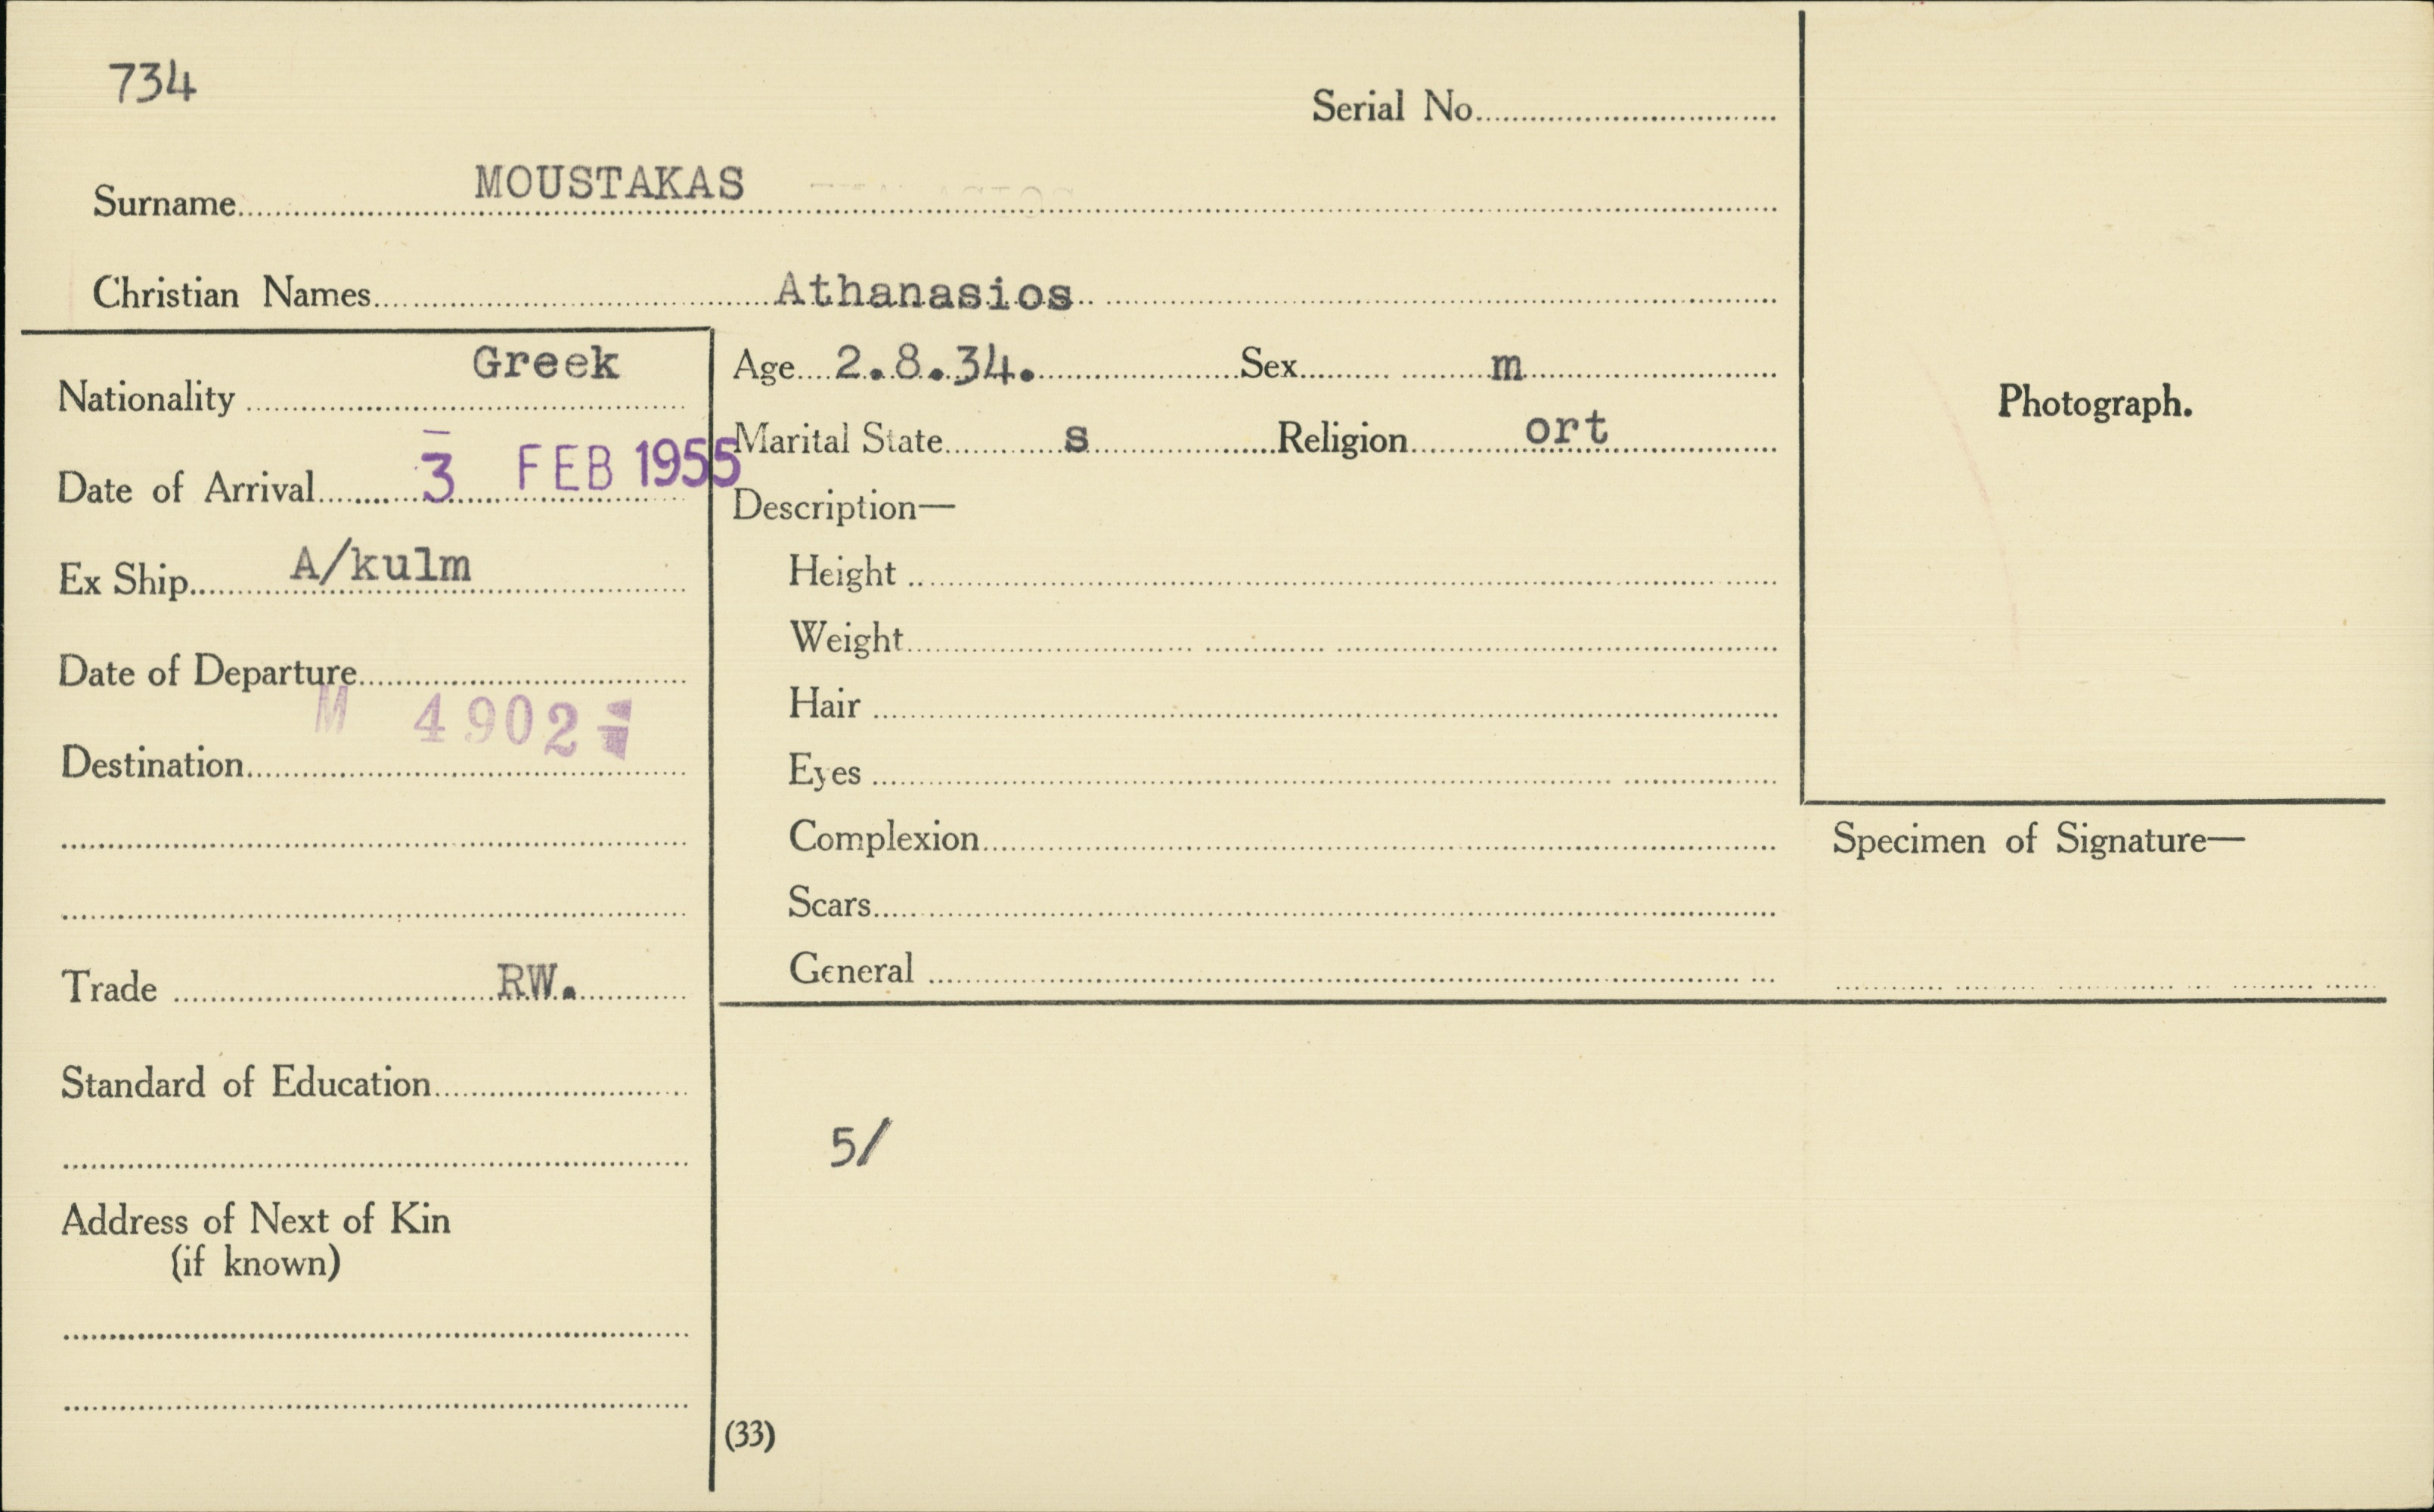 734
Serial No.
Surname MOUSTAKAS
Christian Names Athanasios
Nationality Greek
Date of Arrival 3 FEB 1955
Ex Ship A/kulm
Date of Departure
M 4902
Destination
Trade RW.
Standard of Education
Address of Next of Kin
(if known)
Age 2.8.34. Sex m
Marital State s Religion ort
Description—
Height
Weight
Hair
Eyes
Complexion
Scars
General
5/
(33)
Photograph.
Specimen of Signature—